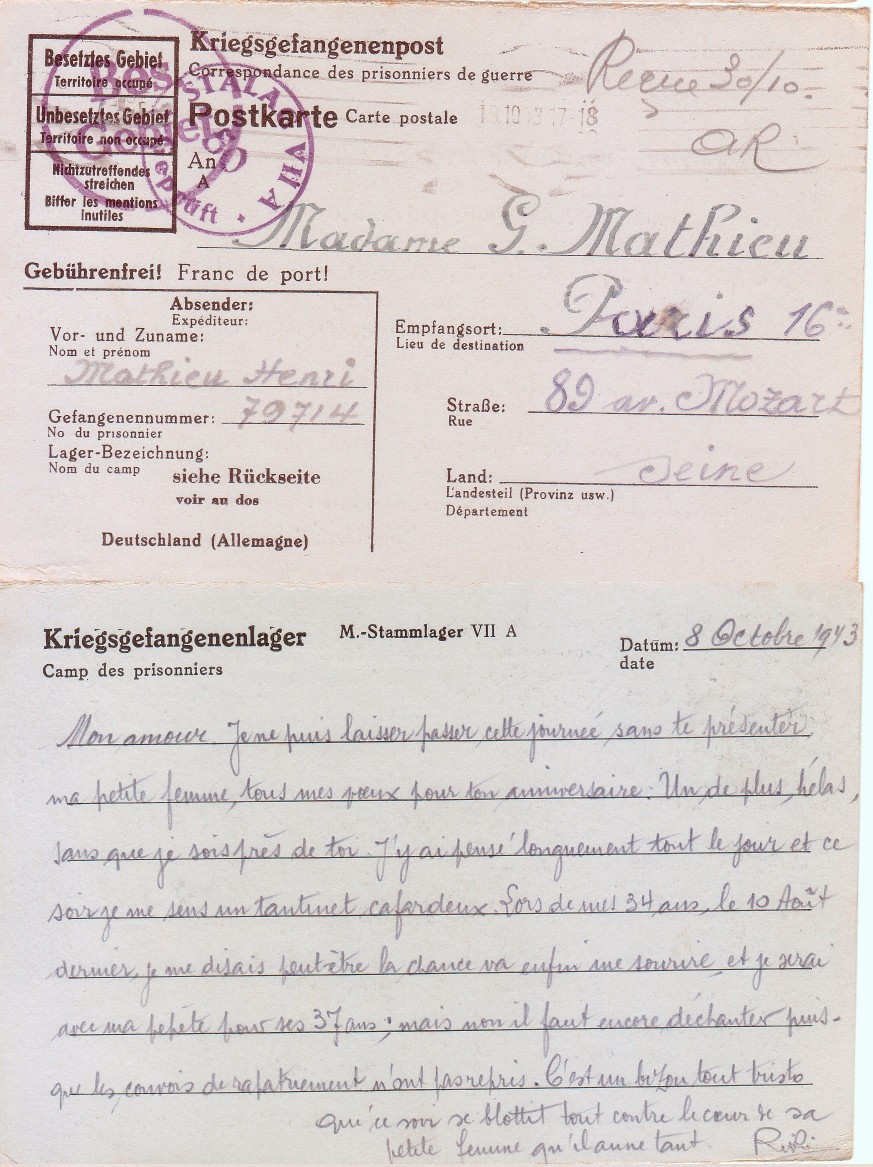 Besetztes Gebiet
Territoire occupé
Unbesetztes Gebiet
Territoire non occupé
Nichtzutreffendes
streichen
Biffer les mentions
inutiles
STALAG VII A
Geprüft
Kriegsgefangenenpost
Correspondance des prisonniers de guerre
Reçue 30/10.
Postkarte Carte postale
17-18
OR
An
A
Madame G. Mathieu
Gebührenfrei! Franc de port!
Absender:
Expéditeur:
Vor- und Zuname:
Nom et prénom
Mathieu Henri
Gefangenennummer: 79714
No du prisonnier
Lager-Bezeichnung:
Nom du camp
siehe Rückseite
voir au dos
Deutschland (Allemagne)
Empfangsort: Paris 16e
Lieu de destination
Straße: 89 av. Mozart
Rue
Land: Seine
Landesteil (Provinz usw.)
Département
Kriegsgefangenenlager M.-Stammlager VII A
Camp des prisonniers
Datum: 8 Octobre 1943
date
Mon amour. Je ne puis laisser passer cette journée sans te présenter,
ma petite femme, tous mes vœux pour ton anniversaire. Un de plus, hélas,
sans que je sois près de toi. J'y ai pensé longuement tout le jour et ce
soir je me sens un tantinet cafardeux. Lors de mes 34 ans, le 10 Août
dernier, je me disais peut-être la chance va enfin me sourire et je serai
avec ma pépète pour ses 37 ans ; mais non il faut encore déchanter puis-
que les convois de rapatriement n'ont pas repris. C'est un tout triste
qui ce soir se blottit tout contre le cœur de sa
petite femme qu'il aime tant. RiRi